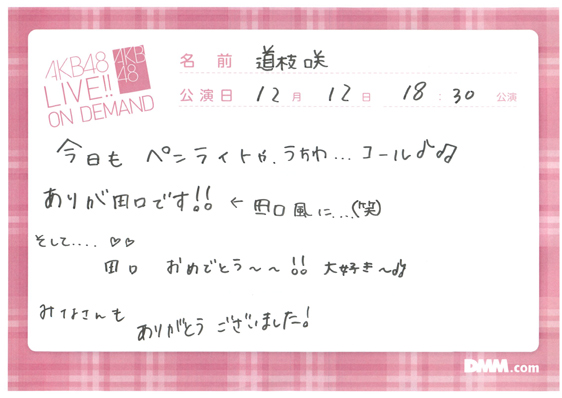 AKB48
LIVE!!
ON DEMAND
AKB
48
名前 道枝咲
公演日 12月 12日 18:30 公演
今日も ペンライトや、うちわ... コール♪♫
ありが田口です!! ← 田口風に...(笑)
そして.... ♡♡
田口 おめでとう〜〜!! 大好き〜♫
みなさんも
ありがとう ございました!
DMM.com